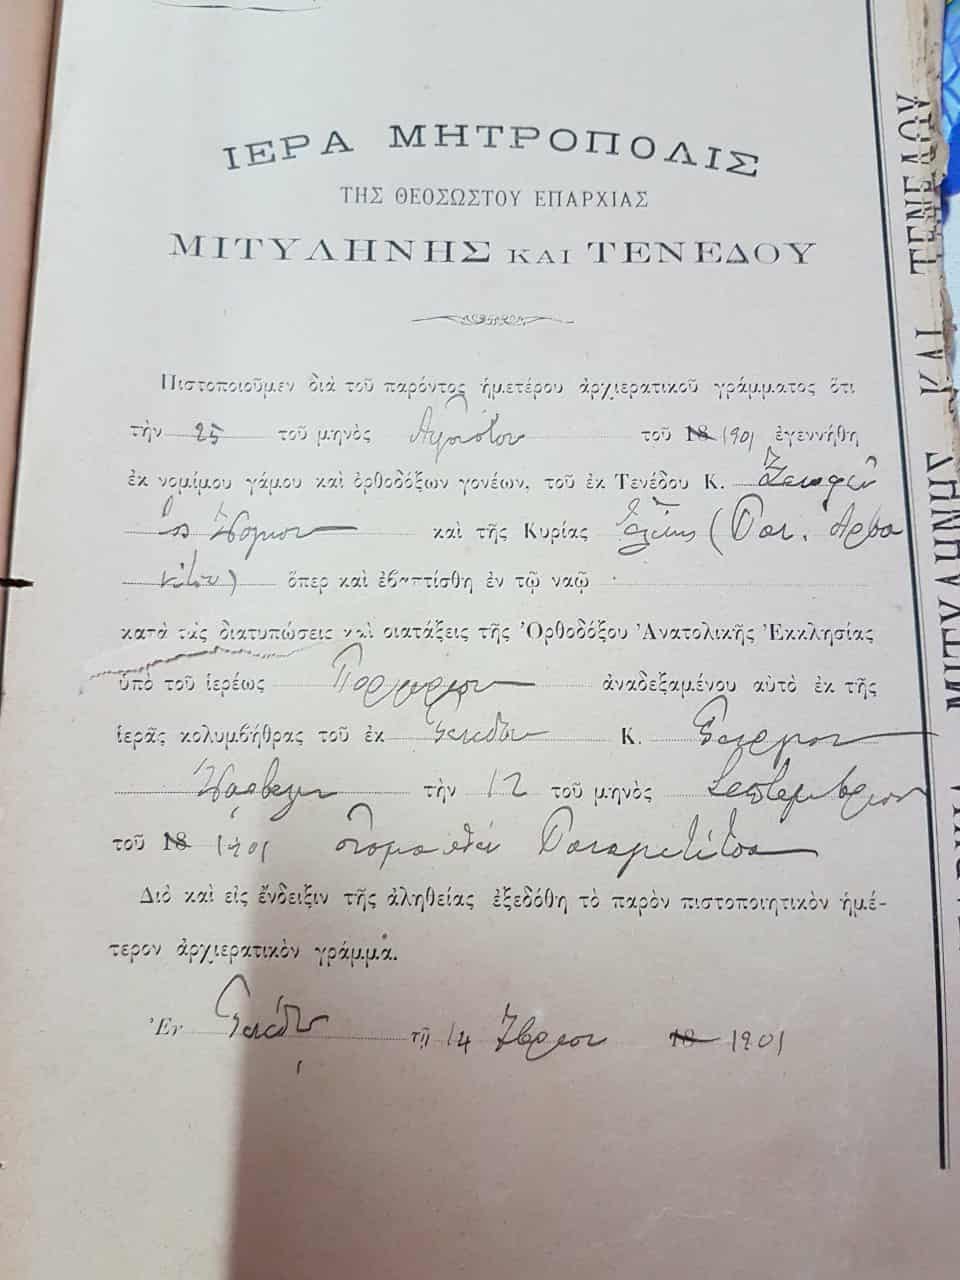 ΙΕΡΑ ΜΗΤΡΟΠΟΛΙΣ
ΤΗΣ ΘΕΟΣΩΣΤΟΥ ΕΠΑΡΧΙΑΣ
ΜΙΤΥΛΗΝΗΣ ΚΑΙ ΤΕΝΕΔΟΥ
Πιστοποιοῦμεν διὰ τοῦ παρόντος ἡμετέρου ἀρχιερατικοῦ γράμματος ὅτι
τὴν 25 τοῦ μηνὸς Αὐγούστου τοῦ 18 1901 ἐγεννήθη
ἐκ νομίμου γάμου καὶ ὀρθοδόξων γονέων, τοῦ ἐκ Τενέδου Κ.
καὶ τῆς Κυρίας Ἑλένης (
ὅπερ καὶ ἐβαπτίσθη ἐν τῷ ναῷ
κατὰ τὰς διατυπώσεις καὶ διατάξεις τῆς Ὀρθοδόξου Ἀνατολικῆς Ἐκκλησίας
ὑπὸ τοῦ ἱερέως Πορφυρίου ἀναδεξαμένου αὐτὸ ἐκ τῆς
ἱερᾶς κολυμβήθρας τοῦ ἐκ Τενέδου Κ. Γεωργίου
τὴν 12 τοῦ μηνὸς Σεπτεμβρίου
τοῦ 18 1901
Διὸ καὶ εἰς ἔνδειξιν τῆς ἀληθείας ἐξεδόθη τὸ παρὸν πιστοποιητικὸν ἡμέ-
τερον ἀρχιερατικὸν γράμμα.
Ἐν Τενέδῳ τῇ 14 7βρίου 18 1901
ΜΙΤΥΛΗΝΗΣ ΚΑΙ ΤΕΝΕΔΟΥ